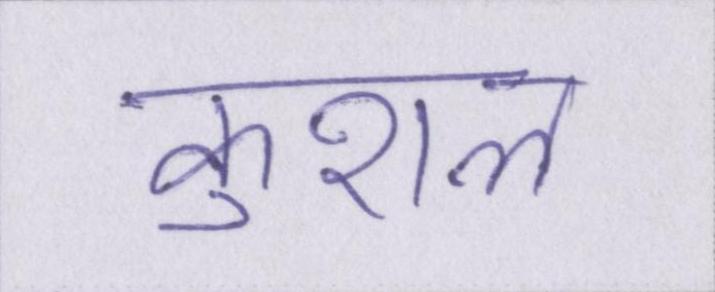 कुशल